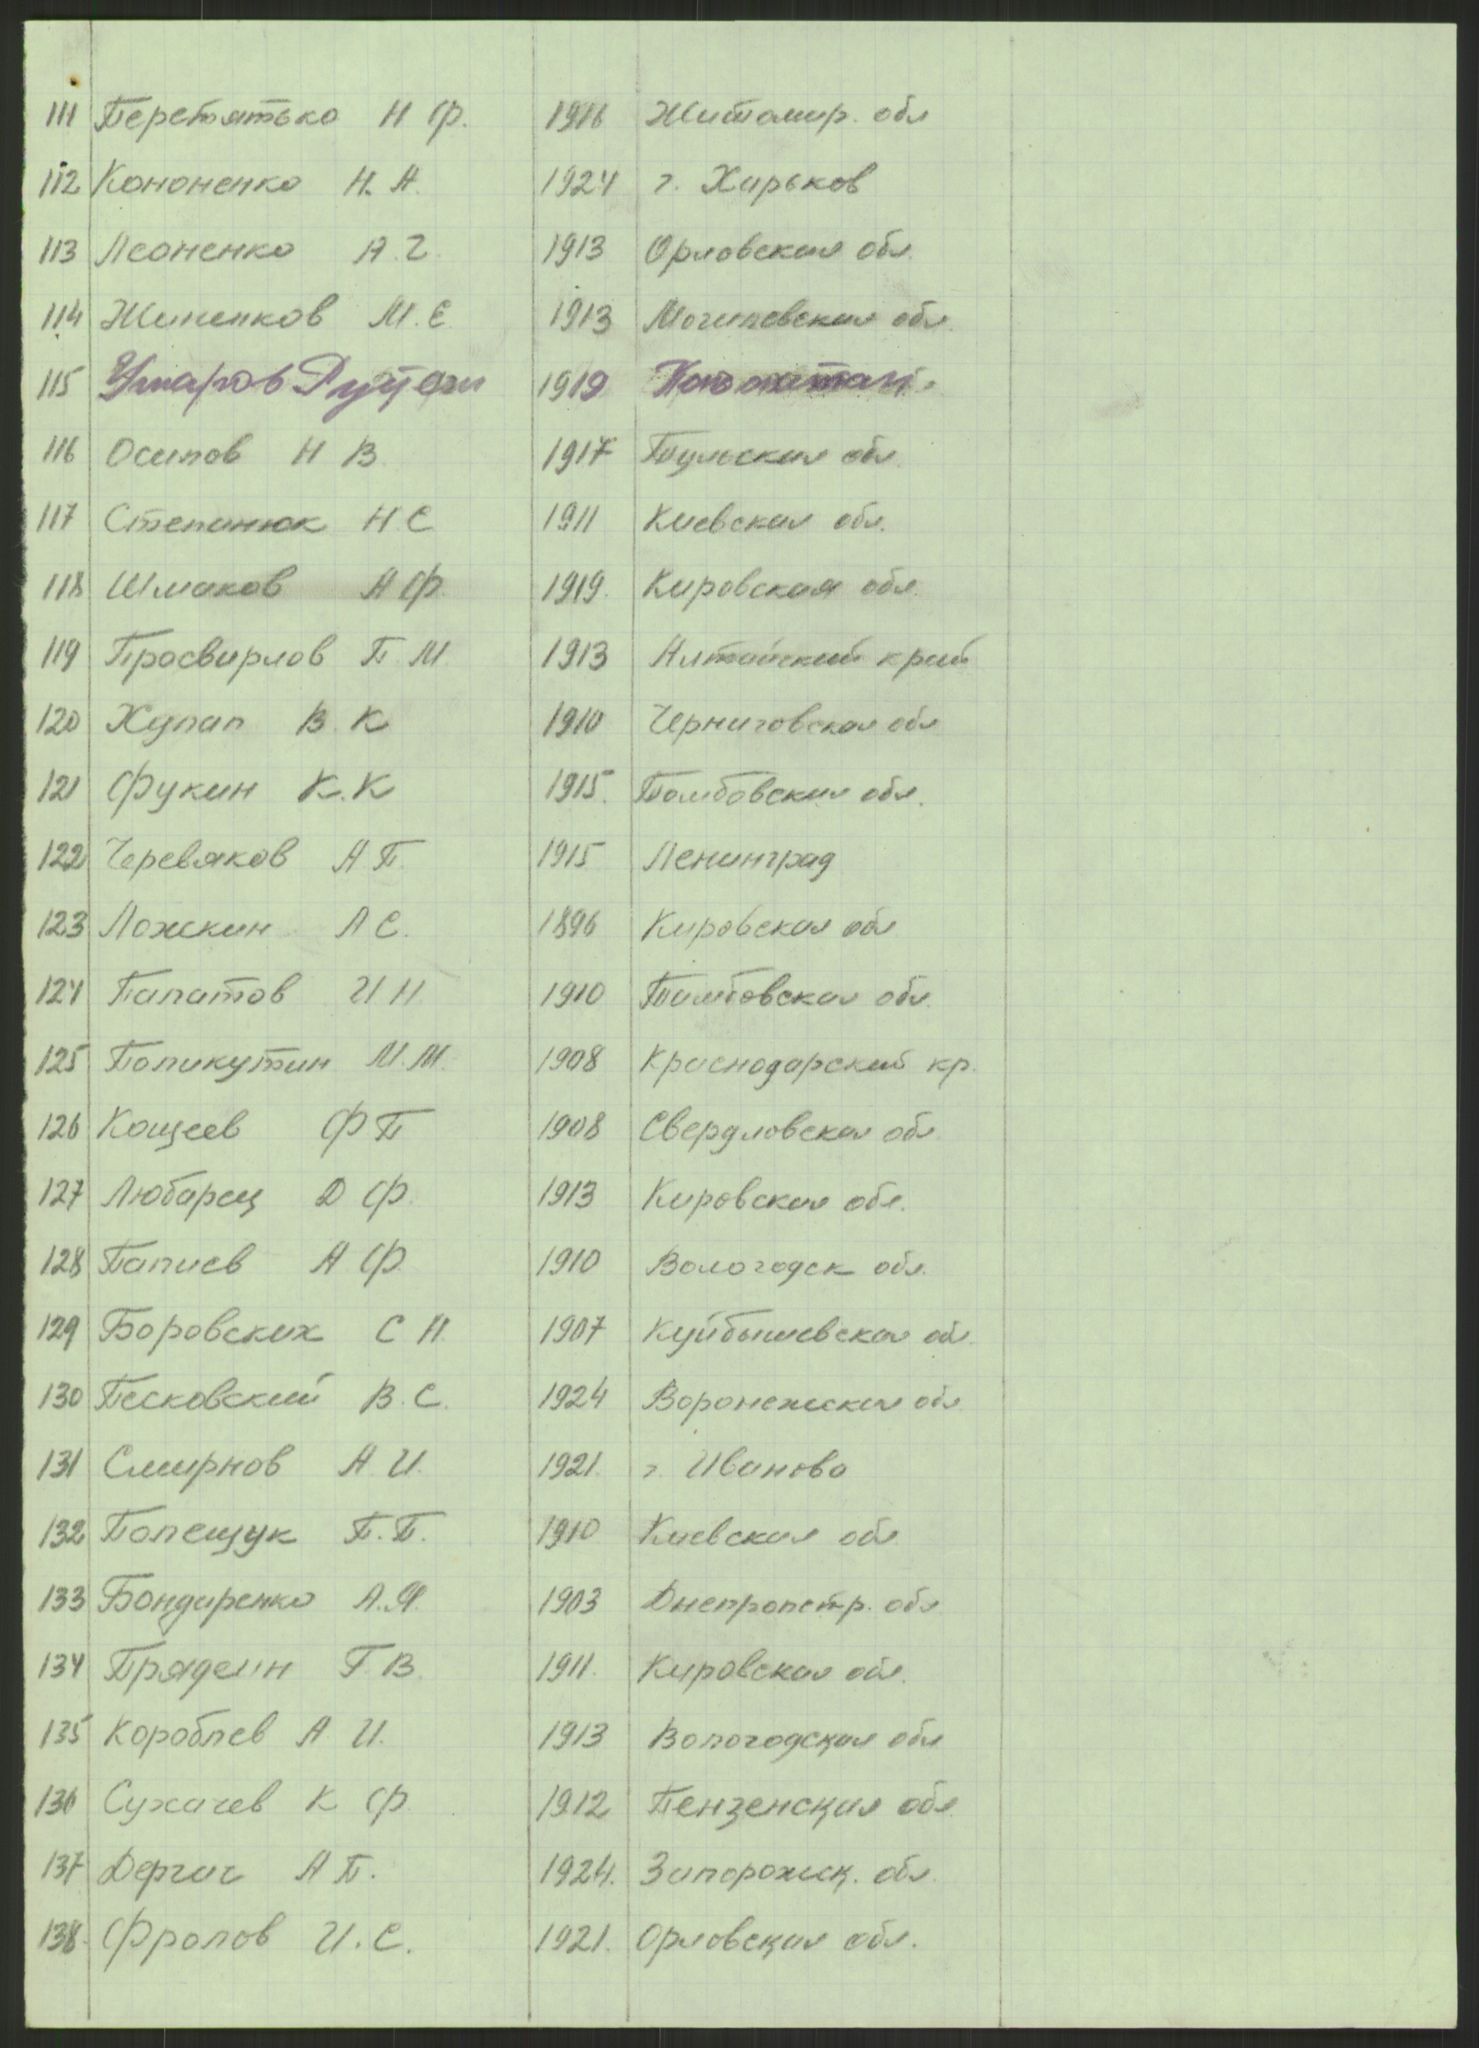 111 Перетятько Н Ф. 1916 Житомир. обл
112 Кононенко Н. А. 1924 г. Харьков
113 Леоненко А. Г. 1913 Орловская обл.
114 Жиленков М. Е. 1913 Могилевская обл.
115 Умаров 1919
116 Осипов Н В. 1917 Тульская обл.
117 Степанюк Н С 1911 Киевская обл.
118 Шмаков А Ф. 1919. Кировская обл.
119 Просвирлов П. М. 1913 Алтайский край
120 Хулап В. К 1910 Черниговская обл
121 Фукин К. К 1915. Томбовская обл.
122 Черевяков А П. 1915 Ленинград
123 Ложкин Л С. 1896 Кировская обл
124 Палатов И Н. 1910 Тамбовская обл.
125 Поликутин М. М. 1908 Краснодарский кр.
126 Кощеев Ф П 1908 Свердловская обл
127 Любарец Д Ф. 1913 Кировская обл.
128 Папиев А Ф. 1910 Вологодск обл.
129 Боровских С Н. 1907 Куйбышевская обл.
130 Песковский В. С. 1924 Воронежская обл
131 Смирнов А. И. 1921. г. Иваново
132 Полещук П. П. 1910 Киевская обл
133 Бондаренко А. Я. 1903 Днепропетр. обл
134 Прядеин Г. В. 1911. Кировская обл.
135 Кораблев А И. 1913 Вологодская обл
136 Сухачев К Ф. 1912 Пензенская обл.
137 Дергач А П. 1924. Запорожск. обл.
138. Фролов И. С. 1921. Орловская обл.